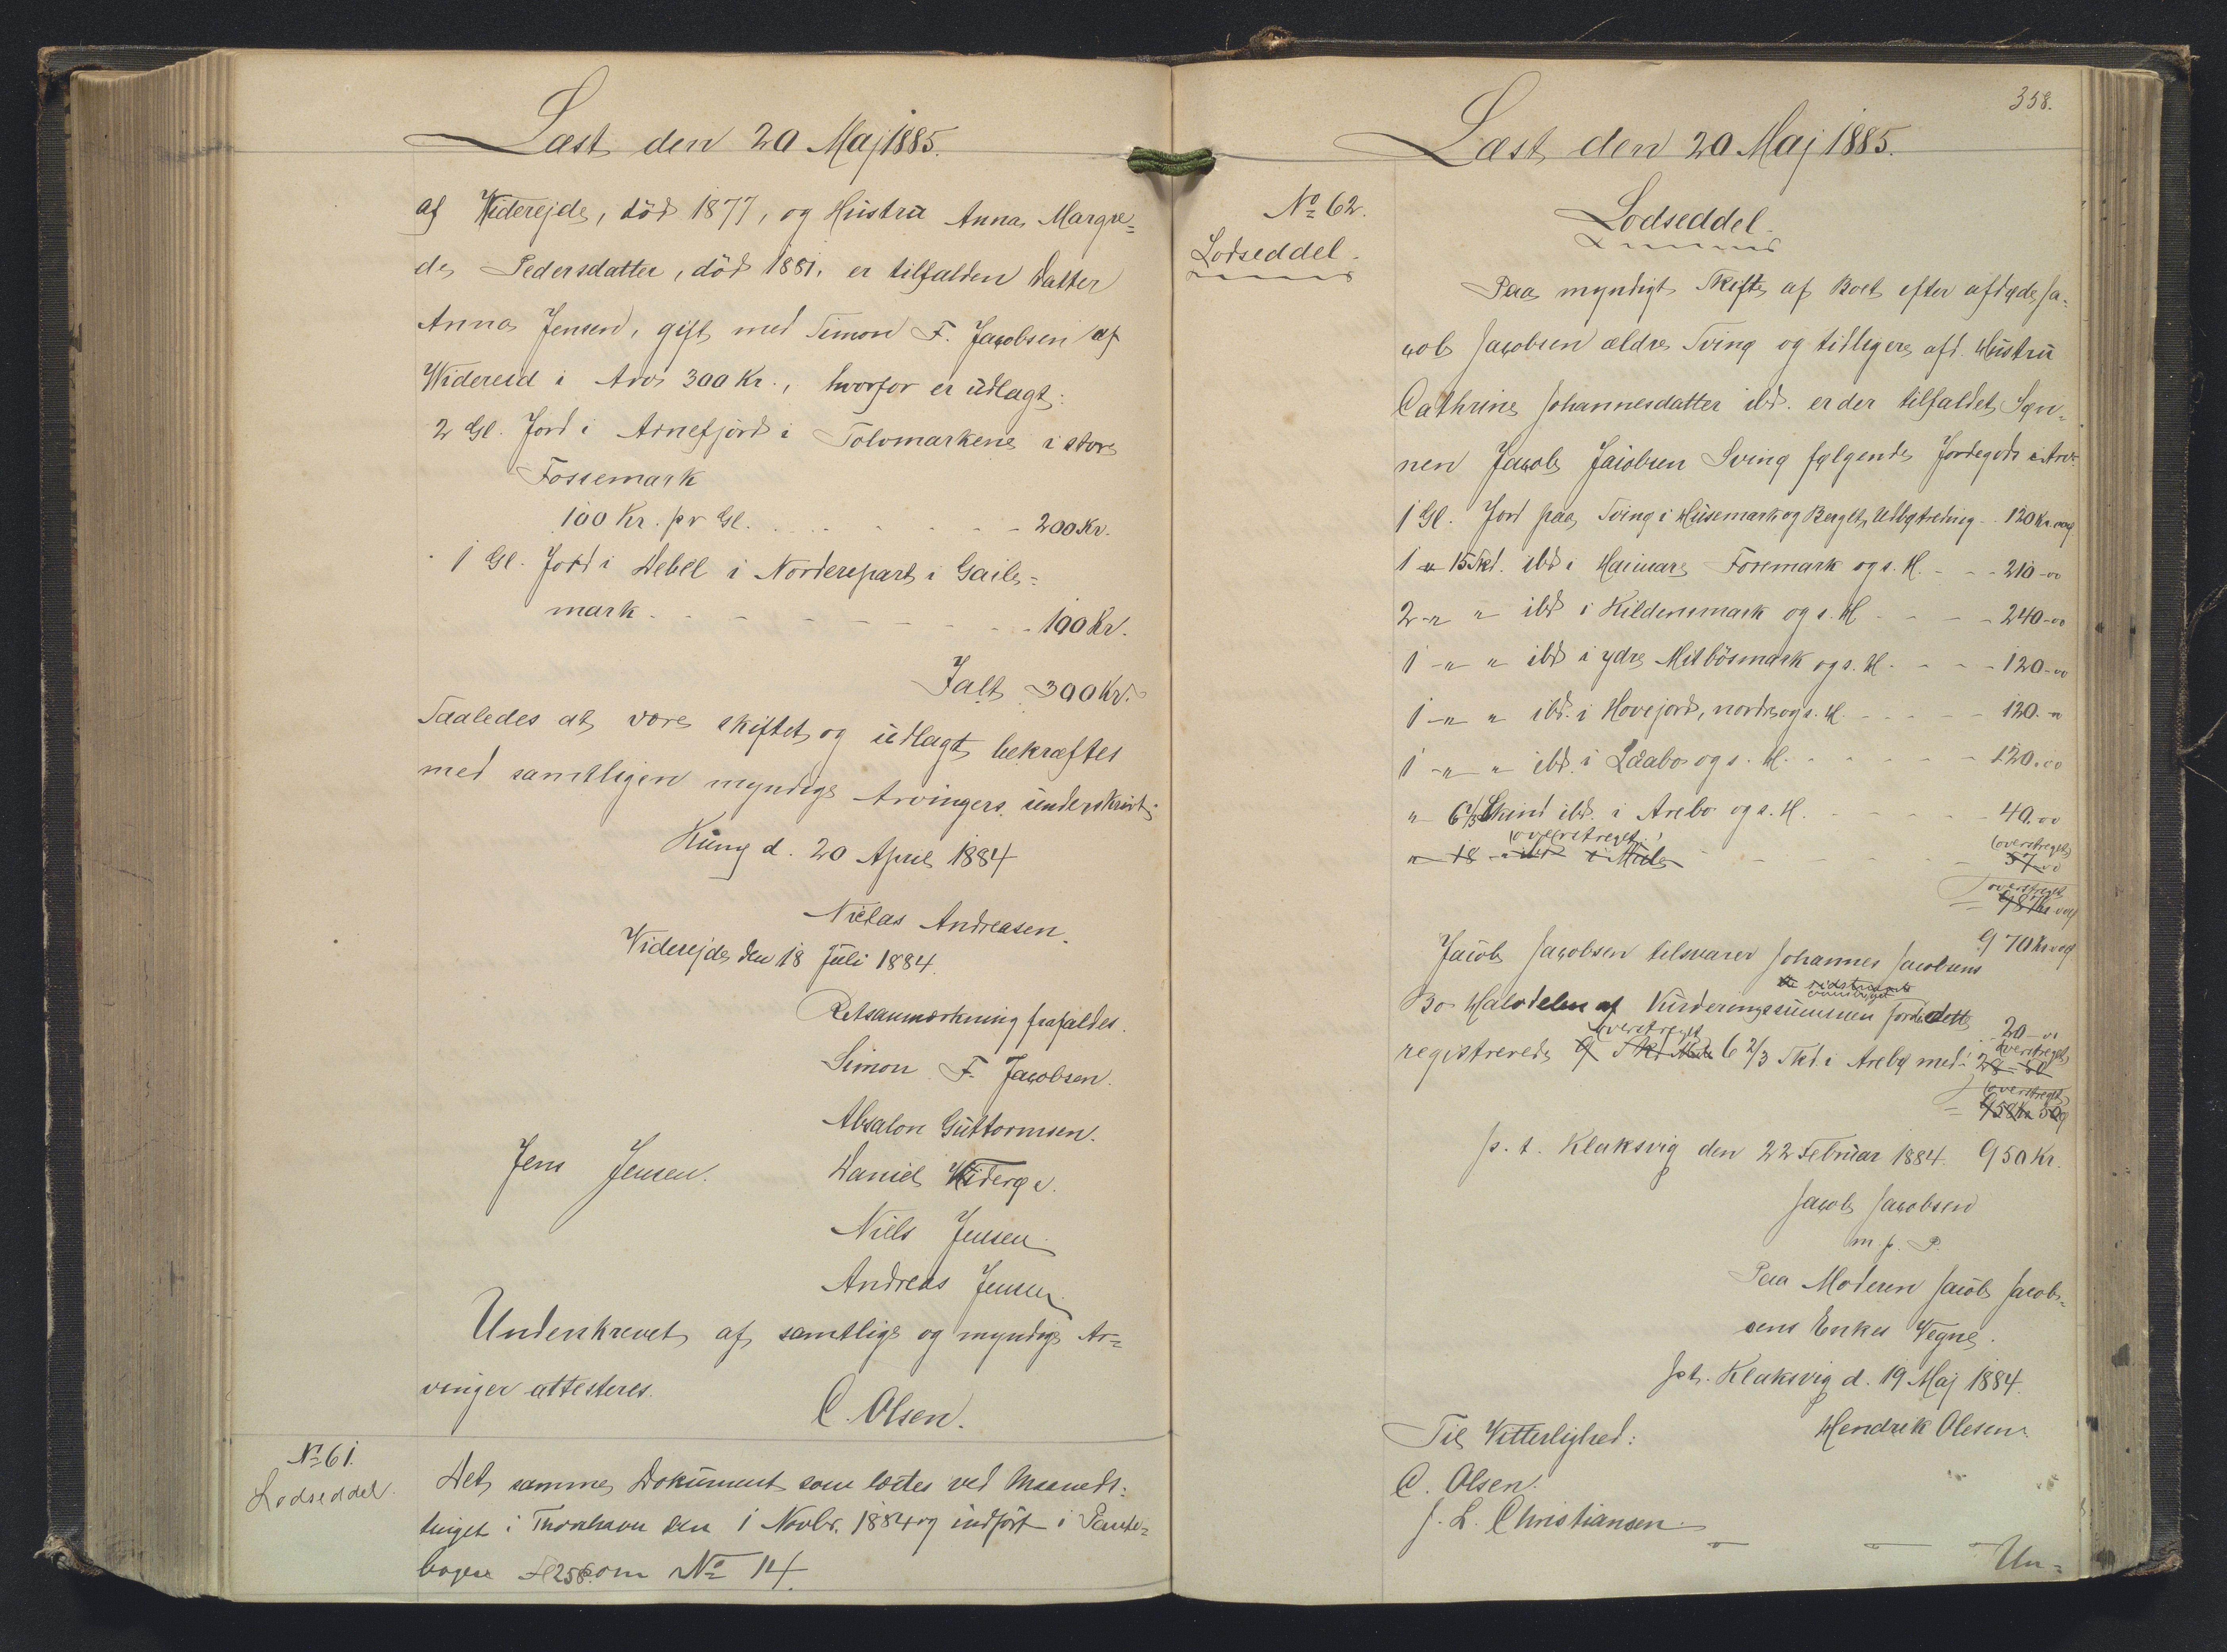 Læst den 20 Maj 1885.
af Widerejde, död 1877, og Hustru Anna Margre=
de Pedersdatter, död 1881, er tilfalden Datter
Anna Jensen, gift med Simon F. Jacobsen af
Widereid i Arv 300 Kr., hvorfor er udlagt:
2 Gl. Jord i Arnefjord i Tolvmarkene i store
Fossemark
100 Kr. pr Gl. . . . . . . 200 Kr.
1 Gl. Jord i Debel i Norderepart i Gaile=
mark - - - - - - - 100 Kr.
Ialt 300 Kr.
Saaledes at være skiftet og udlagt bekræftes
med samtligen myndige Arvingers underskrift.
Kuny d. 20 April 1884
Niclas Andreasen.
Viderejde den 18 Juli 1884.
Retsanmærkning frafaldes.
Simon F. Jacobsen.
Absalon Guttormsen.
Jens Jensen. Daniel Widerøe.
Niels Jensen
Andreas Jensen
Underskrevet af samtlige og myndige Ar=
vinger attesteres.
C. Olsen.
No 61.
Lodseddel.
Det samme Dokument som læstes ved Maaneds=
tinget i Thorshavn den 1 Novbr. 1884 og indfört i Pante=
bogen Fl 256. om No 14.
358.
Læst den 20 Maj 1885.
No 62.
Lodseddel.
Lodseddel.
Paa myndigt Skifte af Boet efter afdøde Ja=
cob Jacobsen ældre Sving og tidligere afd. Hustru
Cathrine Johannesdatter ibd. er der tilfaldet Søn=
nen Jacob Jacobsen Sving følgende Jordegods i Arv:
1 Gl. Jord paa Sving i Husemark og Bergets Udbytredning - 120 Kr. 00 ø
1 " 15 Skd. ibd i Haimare Foremark og s. H. - - - 210 - 00
2 - " " ibd i Kildensmark og s. H - - - 240 - 00
1 - " " ibd i ydre Mitbösmark og s. H. - - - 120 - 00
1 - " " ibd. i Hovejord, nordre og s. H. - - - - 120. "
1 - " " ibd. i Laabo og s. H. - - - - - 120.00
" 6 2/3 Skind ibd. i Arebo og s. H. - - - - - 40.00
(overstreget) (overstreget)
" 18 - " ibd i Mule - - - - - 57.00
overstreget
= 987 Kr. 00 ø
970 Kr 00 ø
Jacob Jacobsen tilsvarer Johannes Jacobsens
overstreget
Bo Halvdelen af Vurderingssummen for det dette
(overstreget) 20 - 00
registrerede 9 Skd Mule 6 2/3 Skd. i Arebø med (overstreget) 28 = 50
(overstreget)
= 958 Kr 50 ø
p. t. Klaksvig den 22 Februar 1884. 950 Kr.
Jacob Jacobsen
m. p. P.
Paa Moderen Jacob Jacob=
sens Enkes Vegne.
pt. Klaksvig d. 19 Maj 1884.
Til Vitterlighed: Hendrik Olesen.
C. Olsen.
J. L. Christiansen.
Un=